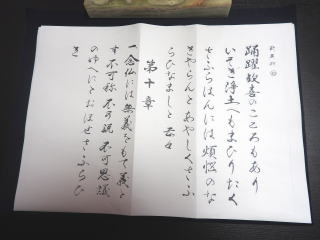 歎異抄
踊躍歓喜のこころもあり
いそぎ浄土へもまひりたく
さふらはんには煩悩のな
きやらんとあやしくさふ
らひなましと云々
第十章
一念仏には無義をもて義と
す不可称不可説不可思議
のゆへにとおほせさふらひ
き